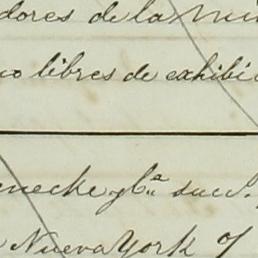 dores de la
libres de exhibi
necke y Ca suc.
Nueva York